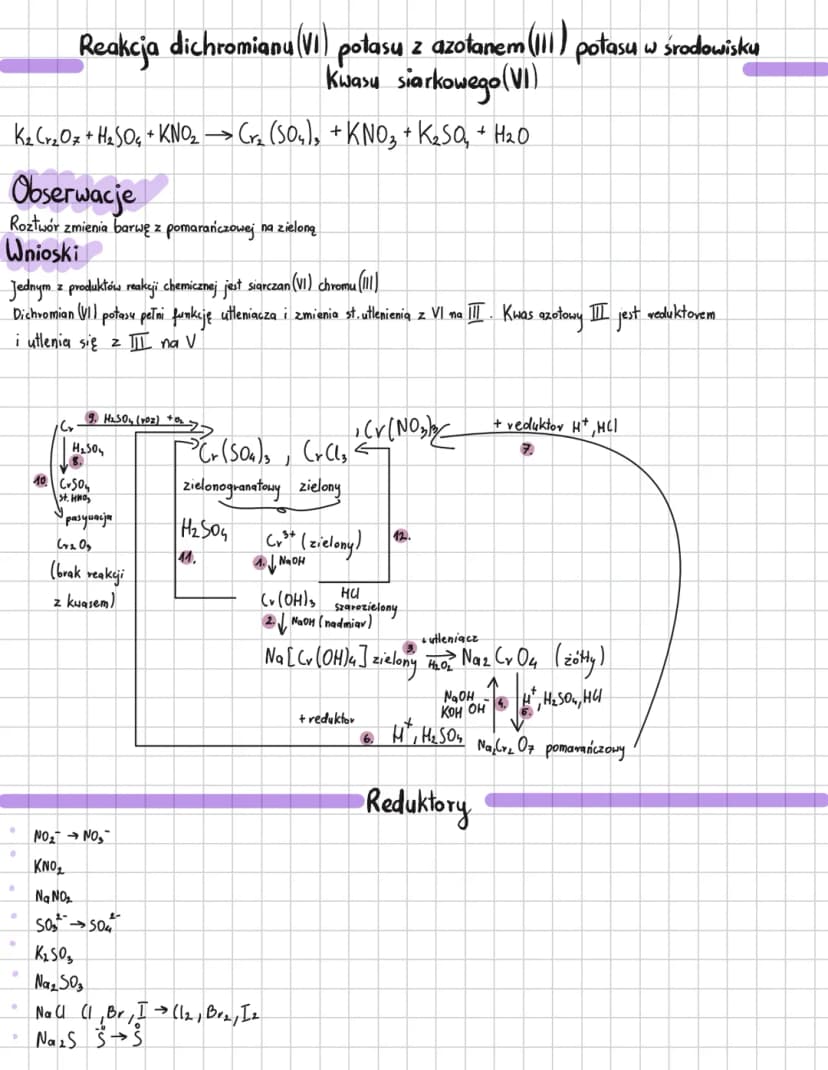 Reakcja dichromianu(VI) potasu z azotanem(III) potasu w środowisku
kwasu siarkowego(VI)
K₂Cr₂O₇ + H₂SO₄ + KNO₂ → Cr₂(SO₄)₃ + KNO₃ + K₂SO₄ + H₂O
Obserwacje
Roztwór zmienia barwę z pomarańczowej na zieloną
Wnioski
Jednym z produktów reakcji chemicznej jest siarczan(VI) chromu(III)
Dichromian(VI) potasu pełni funkcję utleniacza i zmienia st. utlenienia z VI na III. Kwas azotowy III jest reduktorem
i utlenia się z III na V
Cr 9. H₂SO₄(roz) + O₂
, Cr(NO₃)₃ + reduktor H⁺, HCl
7.
H₂SO₄
8.
Cr(SO₄)₃ , CrCl₃
10. CrSO₄
st. HNO₃
zielonogranatowy zielony
pasywacja
Cr₂O₃
(brak reakcji
z kwasem)
H₂SO₄
11.
Cr³⁺ (zielony)
12.
1. ↓ NaOH
Cr(OH)₃ HCl
szarozielony
2. ↓ NaOH (nadmiar)
+ utleniacz
Na[Cr(OH)₄] zielony 3. → H₂O₂ Na₂CrO₄ (żółty)
NaOH
KOH OH⁻ 4. 5. H⁺, H₂SO₄, HCl
+ reduktor
6. H⁺, H₂SO₄ Na₂Cr₂O₇ pomarańczowy
Reduktory
NO₂⁻ → NO₃⁻
KNO₂
NaNO₂
SO₃²⁻ → SO₄²⁻
K₂SO₃
Na₂SO₃
NaCl Cl, Br, I → Cl₂, Br₂, I₂
Na₂S S → S